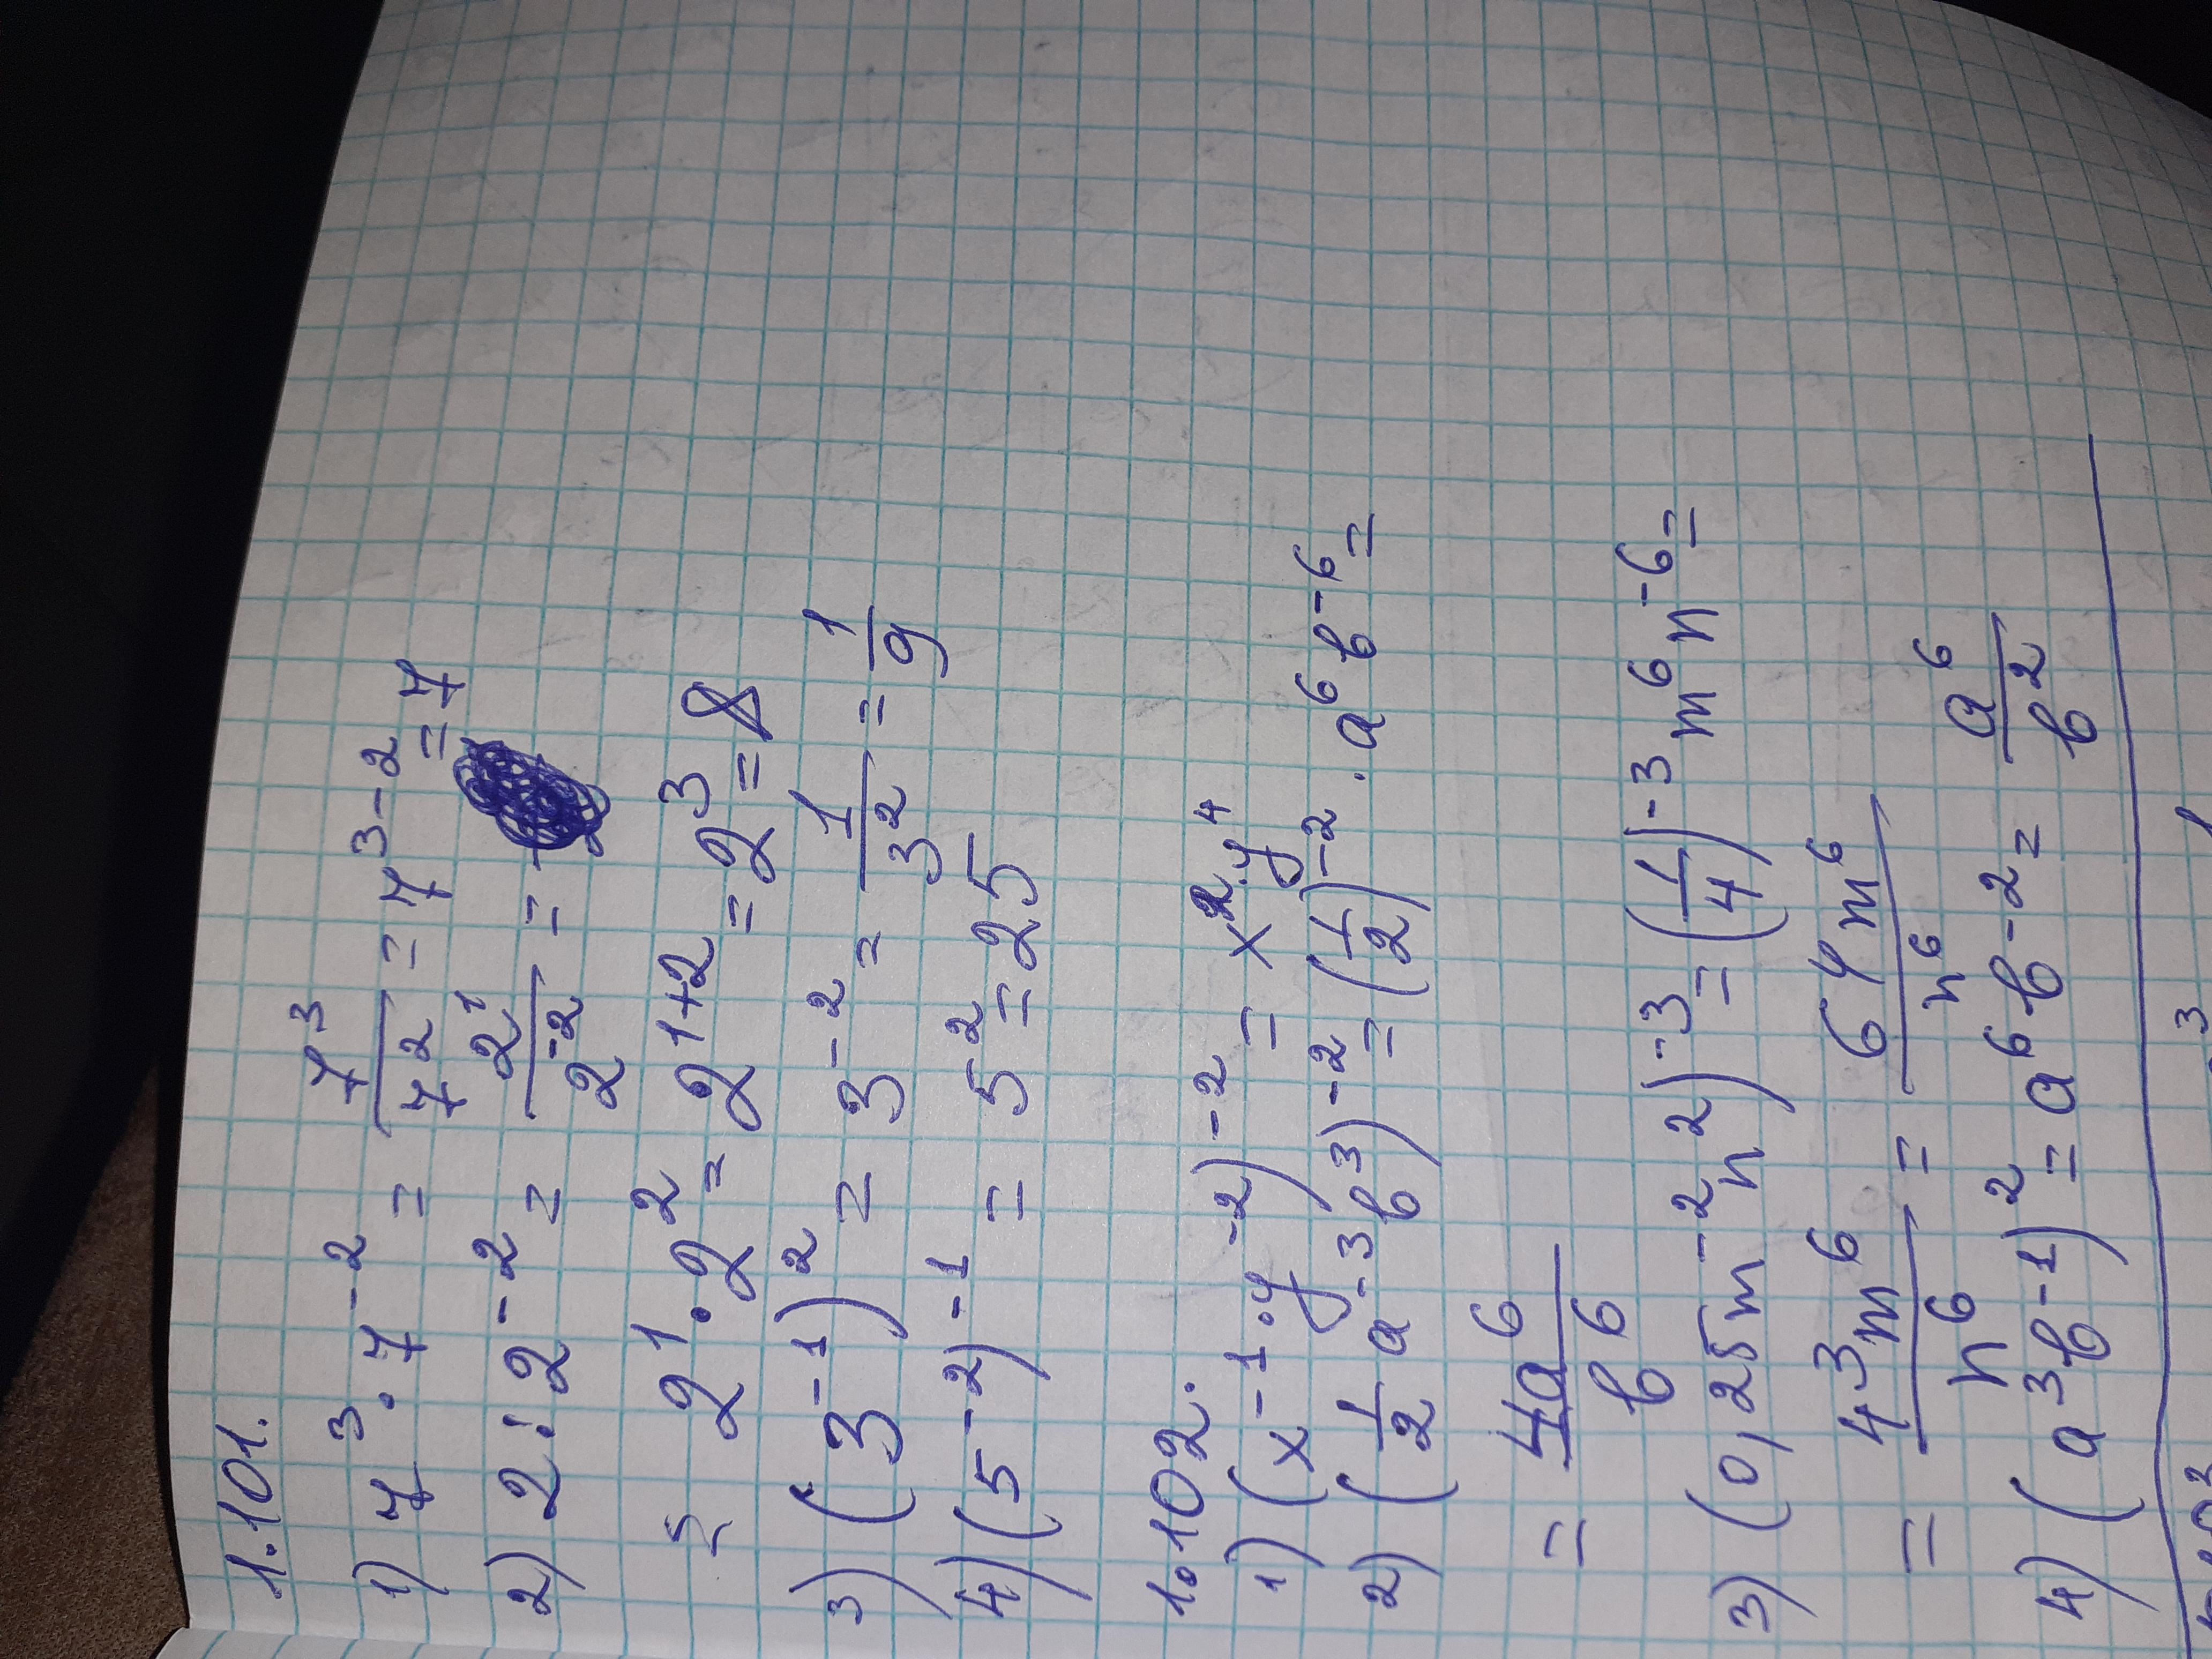 1.101.
1) 7³ · 7⁻² = 7³/7² = 7³⁻² = 7
2) 2 : 2⁻² = 2¹/2⁻² =
= 2¹ · 2² = 2¹⁺² = 2³ = 8
3) (3⁻¹)² = 3⁻² = 1/3² = 1/9
4) (5⁻²)⁻¹ = 5² = 25
1.102.
1) (x⁻¹ · y⁻²)⁻² = x² · y⁴
2) (1/2 a⁻³ b³)⁻² = (1/2)⁻² · a⁶ b⁻⁶ =
= 4a⁶/b⁶
3) (0,25m⁻² n²)⁻³ = (1/4)⁻³ m⁶ n⁻⁶ =
= 4³m⁶/n⁶ = 64m⁶/n⁶
4) (a³b⁻¹)² = a⁶b⁻² = a⁶/b²